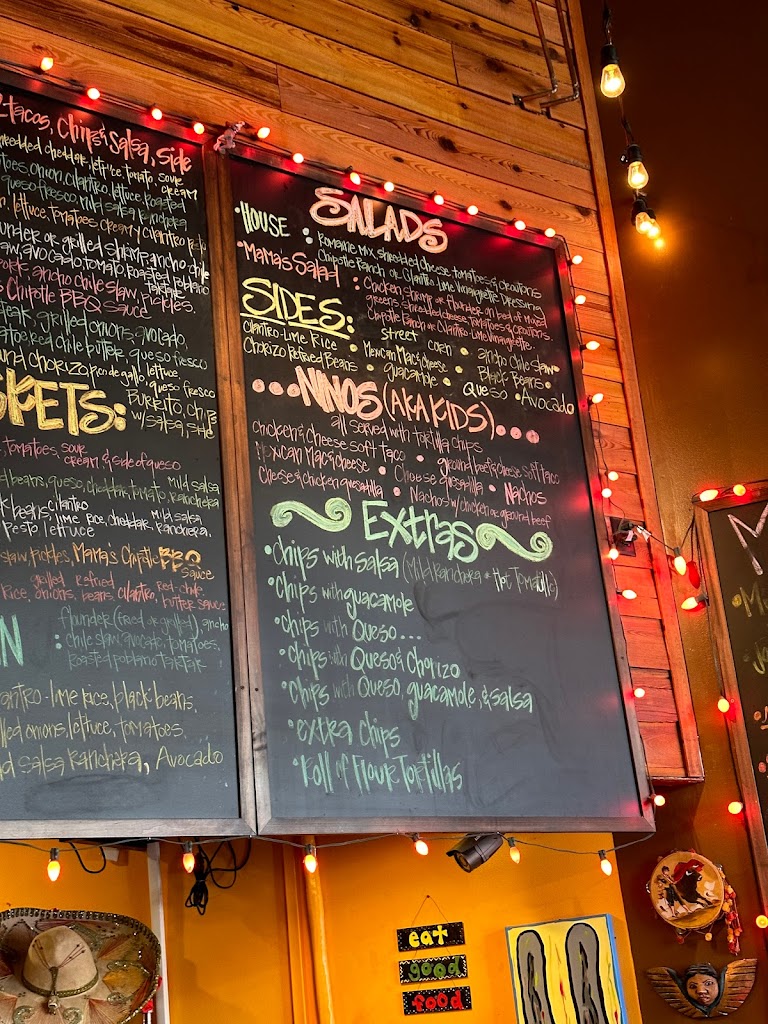 tacos, Chips & Salsa, Side
shredded cheddar, lettuce, tomato, sour cream
onion, cilantro, lettuce, roasted
queso fresco, mild salsa ranchera
lettuce, tomatoes, creamy cilantro
flounder or grilled shrimp, ancho chile
slaw, avocado, tomato, Roasted poblano tartar
pork, ancho chile slaw, pickles,
Chipotle BBQ Sauce
steak, grilled onions, avocado,
red chile butter, queso fresco
ground chorizo, pico de gallo, lettuce, queso fresco
SKETS:
BURRITO, Chips
w/ salsa, side
tomatoes, sour
cream & side of queso
beans, queso, cheddar, tomato, mild salsa ranchera
beans, cilantro lime rice, cheddar, mild salsa ranchera,
pesto, lettuce
slaw, pickles, Mama's Chipotle BBQ sauce
rice, grilled onions, refried beans, cilantro, red-chile butter sauce
N : flounder (fried or grilled), ancho
chile slaw, avocado, tomatoes,
Roasted poblano tartar
cilantro-lime rice, black beans,
grilled onions, lettuce, tomatoes,
salsa Ranchera, Avocado
SALADS
•HOUSE : Romaine Mix, shredded cheese, tomatoes & croutons
Chipotle Ranch or Cilantro-Lime Vinaigrette Dressing
•Mama's Salad : Chicken, Shrimp or Flounder on bed of Mixed
greens, shredded cheese, tomatoes & croutons.
Chipotle Ranch or Cilantro-Lime Vinaigrette
SIDES:
Cilantro-Lime Rice • street corn • ancho chile slaw
Chorizo Refried Beans • Mexican Mac & cheese • Black Beans •
guacamole • Queso • Avocado
...NINOS (AKA KIDS)...
all served with tortilla chips
chicken & cheese soft taco • ground beef & cheese soft taco
Mexican Mac & cheese • Cheese quesadilla • Nachos
Cheese & chicken quesadilla • Nachos w/ chicken or ground beef
Extras
•chips with salsa (Mild Ranchera or Hot Tomatillo)
•chips with guacamole
•chips with Queso...
•chips with Queso & Chorizo
•chips with Queso, guacamole, & salsa
•extra chips
•Roll of Flour Tortillas
M
eat
good
food